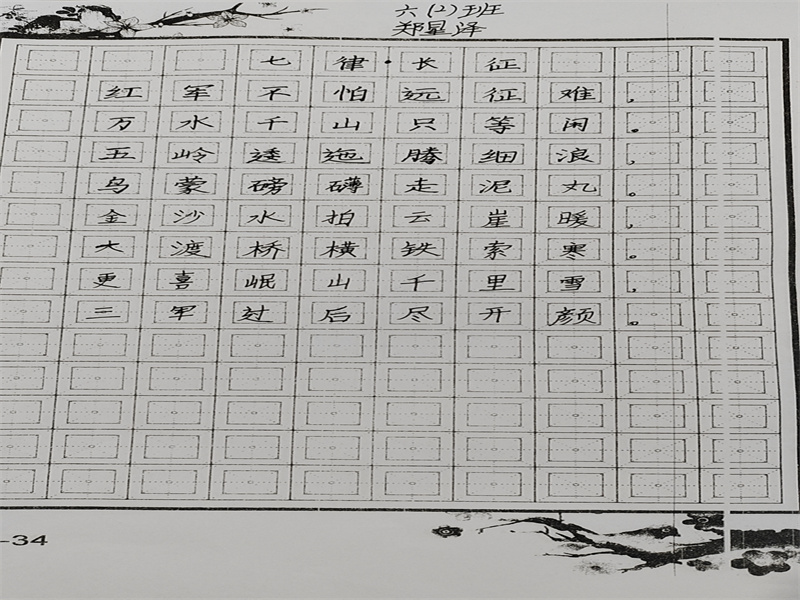 六（2）班
郑星泽
七律·长征
红军不怕远征难，
万水千山只等闲。
五岭逶迤腾细浪，
乌蒙磅礴走泥丸。
金沙水拍云崖暖，
大渡桥横铁索寒。
更喜岷山千里雪，
三军过后尽开颜。
-34